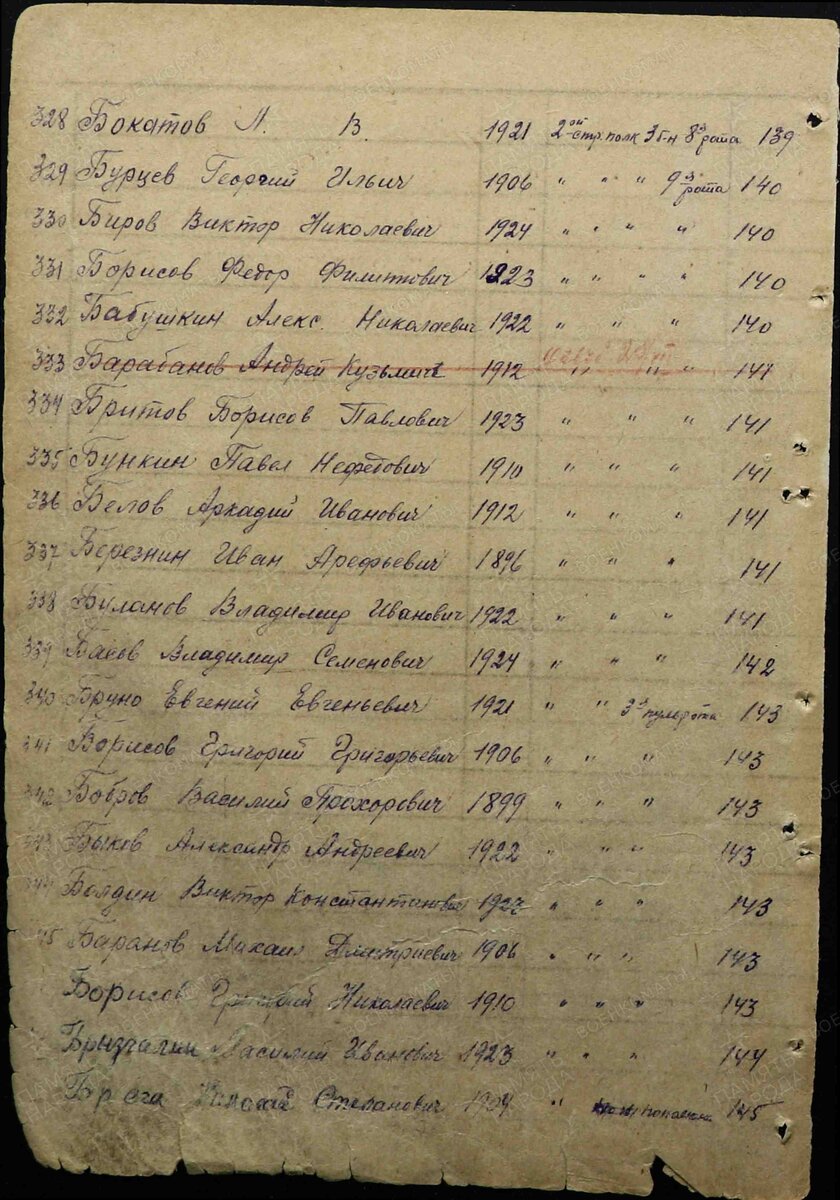 328 Бокатов А. В. 1921 2ой стр. полк 3 б-н 8я рота 139
329 Бурцев Георгий Ильич 1906 " " " 9я рота 140
330 Биров Виктор Николаевич 1924 " " " " 140
331 Борисов Федор Филиппович 1923 " " " " 140
332 Бабушкин Алекс. Николаевич 1922 " " " 140
333 Барабанов Андрей Кузьмич 1912 " " " 141
334 Бритов Борисов Павлович 1923 " " " 141
335 Бункин Павел Нефедович 1910 " " " 141
336 Белов Аркадий Иванович 1912 " " " 141
337 Березнин Иван Арефьевич 1896 " " " 141
338 Буланов Владимир Иванович 1922 " " " 141
339 Басов Владимир Семенович 1924 " " " 142
340 Бруно Евгений Евгеньевич 1921 " " 3я пульрота 143
341 Борисов Григорий Григорьевич 1906 " " " 143
342 Бобров Василий Прохорович 1899 " " " 143
343 Быков Александр Андреевич 1922 " " " 143
344 Болдин Виктор Константинович 1922 " " " 143
345 Баранов Михаил Дмитриевич 1906 " " " 143
Борисов Григорий Николаевич 1910 " " " 143
Брызгалин Василий Иванович 1923 " " " 144
Степанович " 145